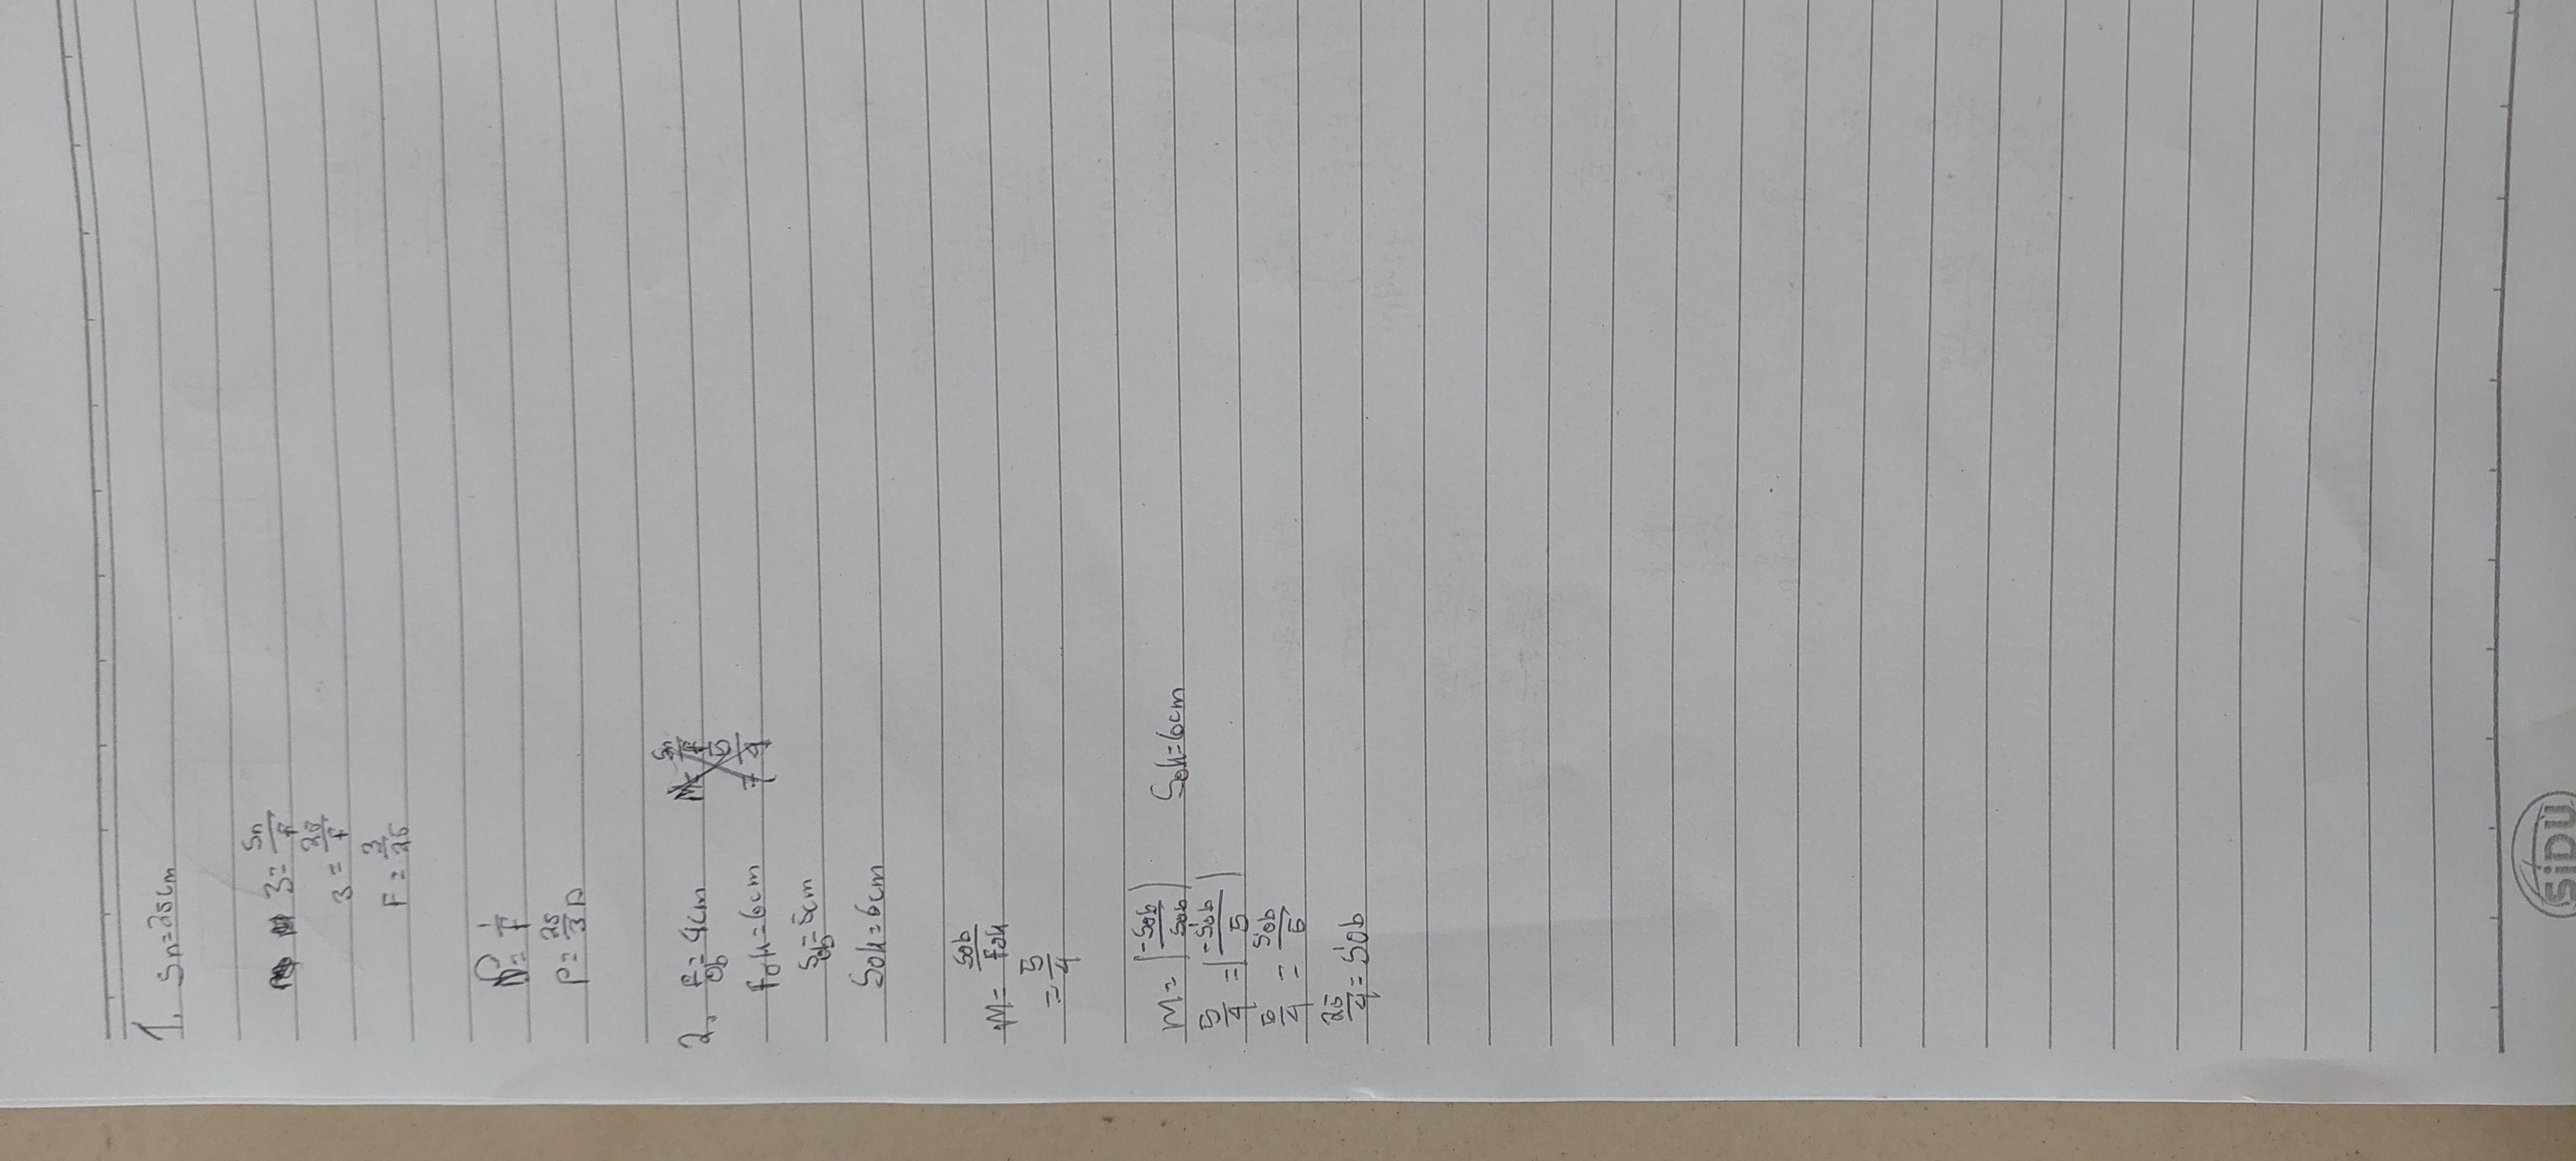 1. Sn=25cm
3= Sn/F
3 = 25/F
F = 3/25
P= 1/F
P= 25/3 D
2. Fob= 4cm
Fok=6cm
Sob=5cm
Sok=6cm
M= Sob/Fok
= 5/4
M= |-Sob/Sob| Sok=6cm
5/4 =|-S'ob/5|
5/4 = S'ob/5
25/4= S'ob
SiDU